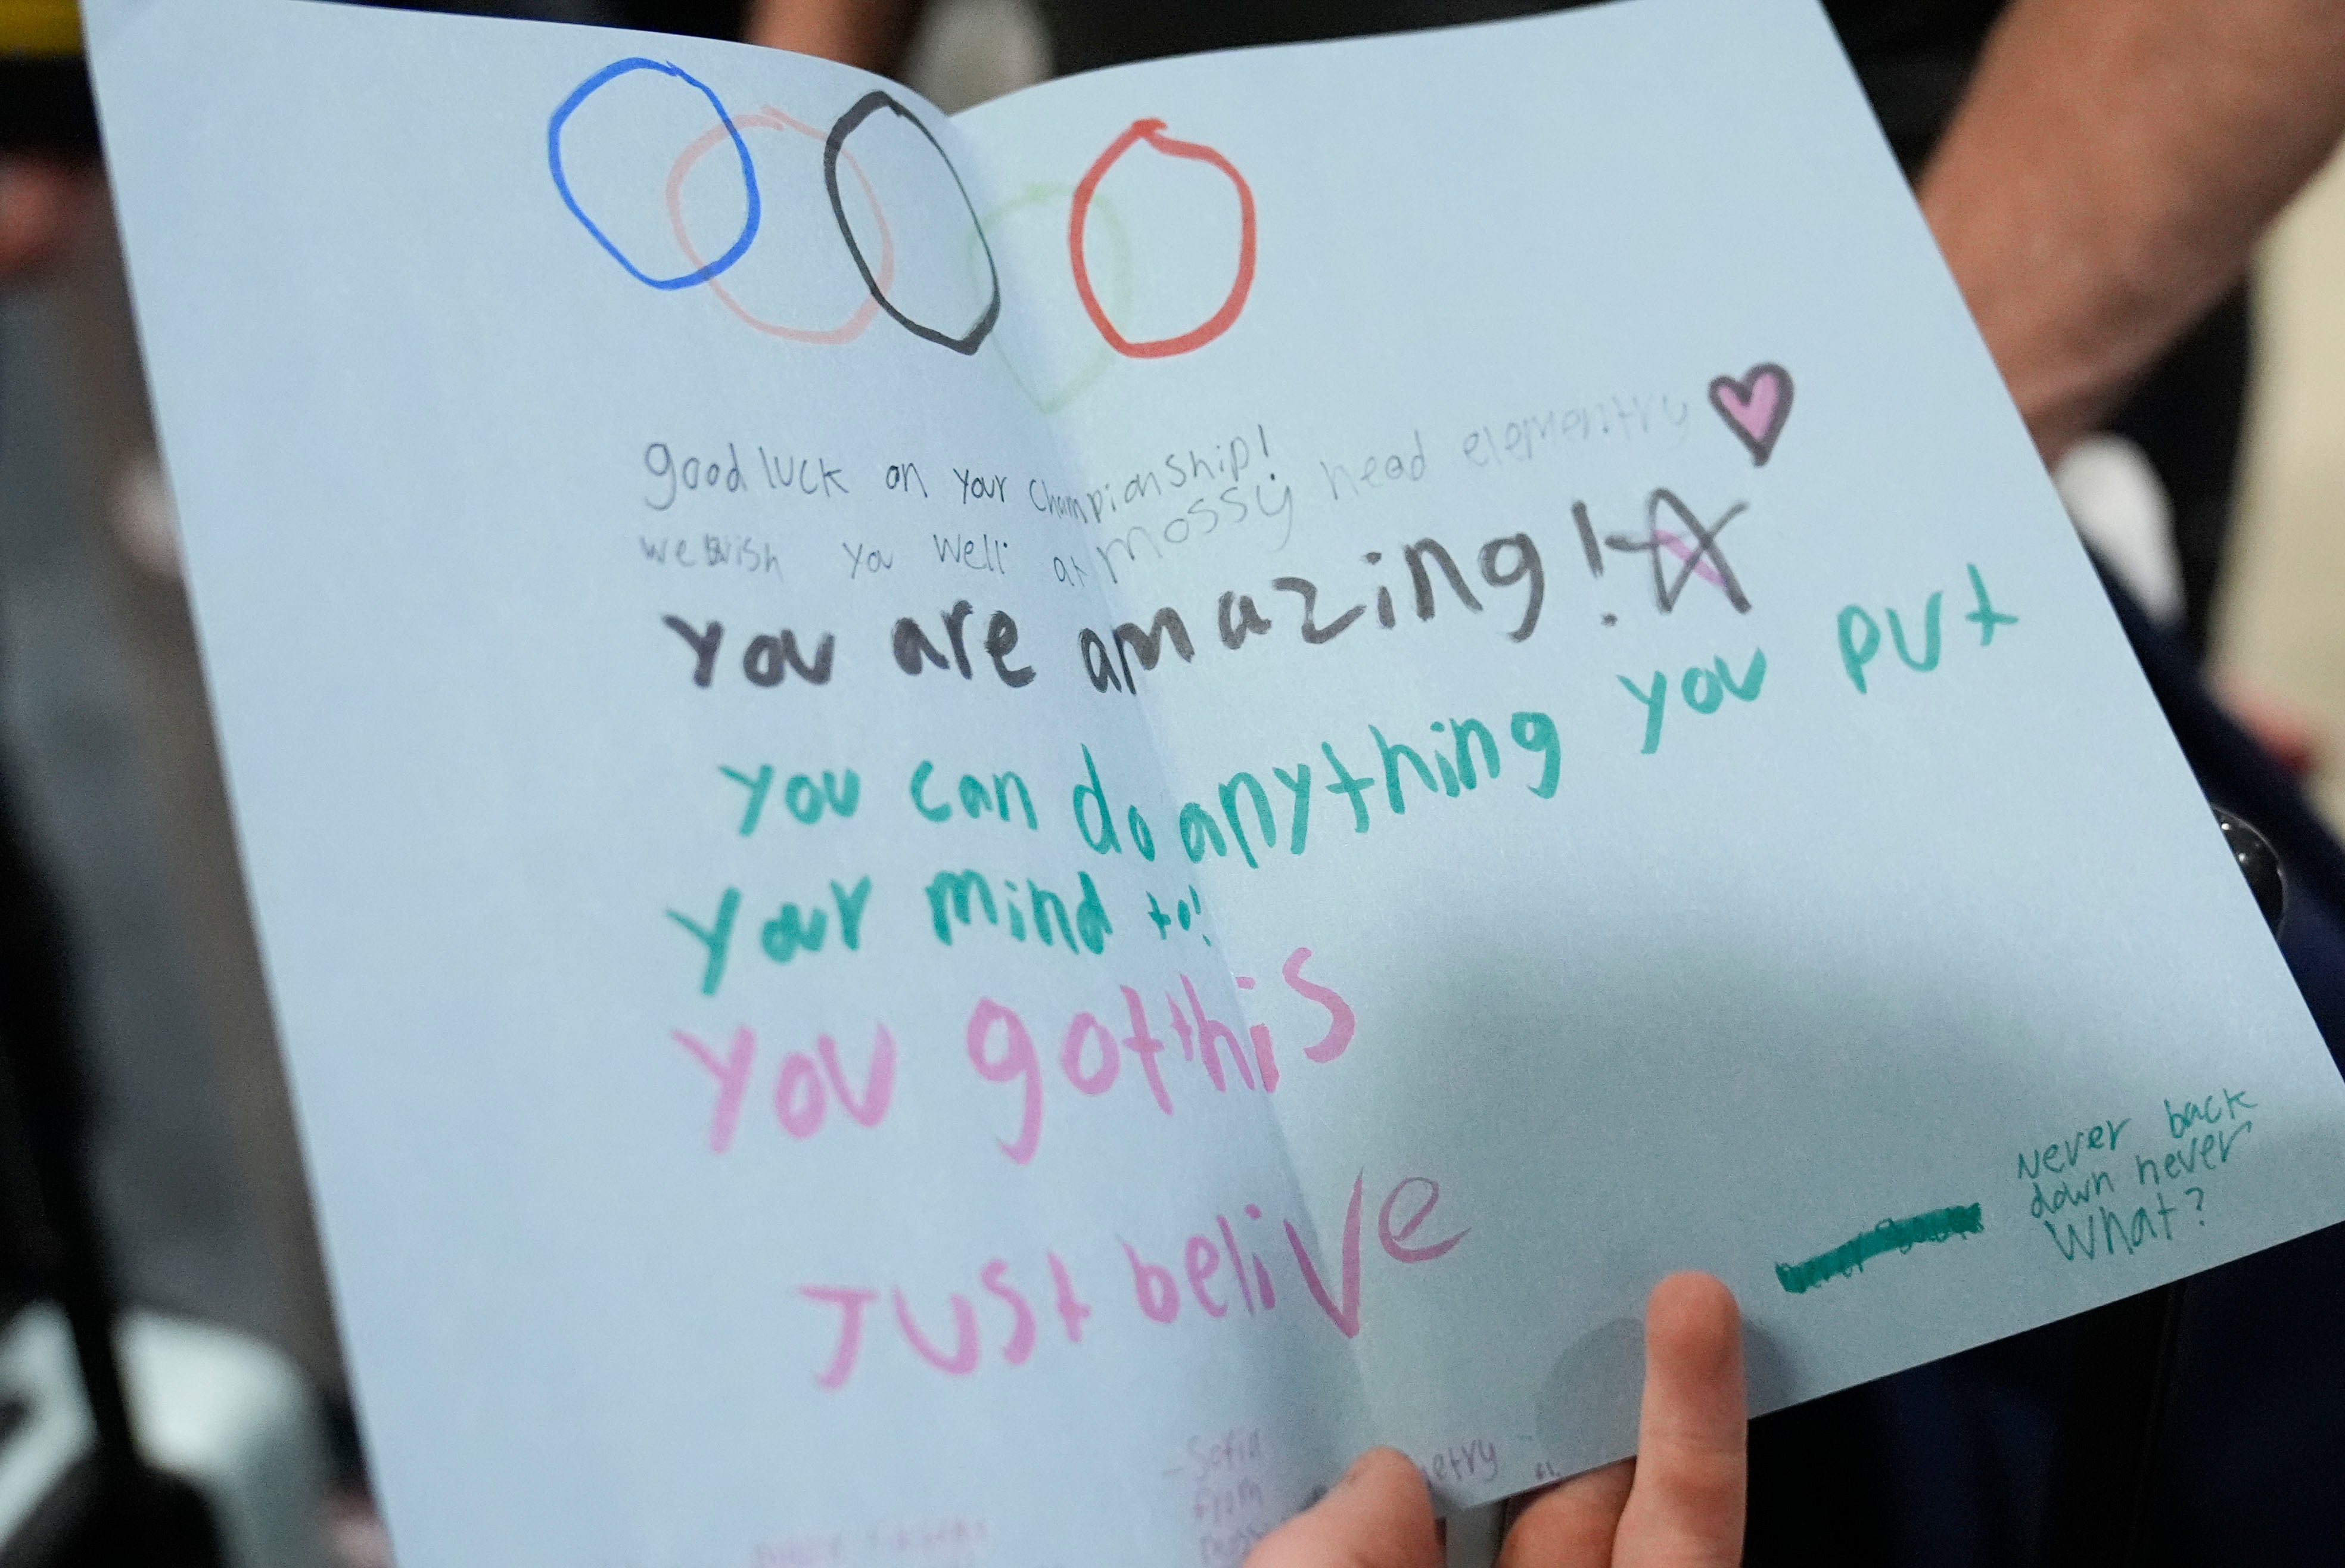 good luck on your championship!
we wish you well at mossy head elementry
you are amazing!
you can do anything you put
your mind to!
you got this
Just belive
Never back
down never
What?
-Sofia
from